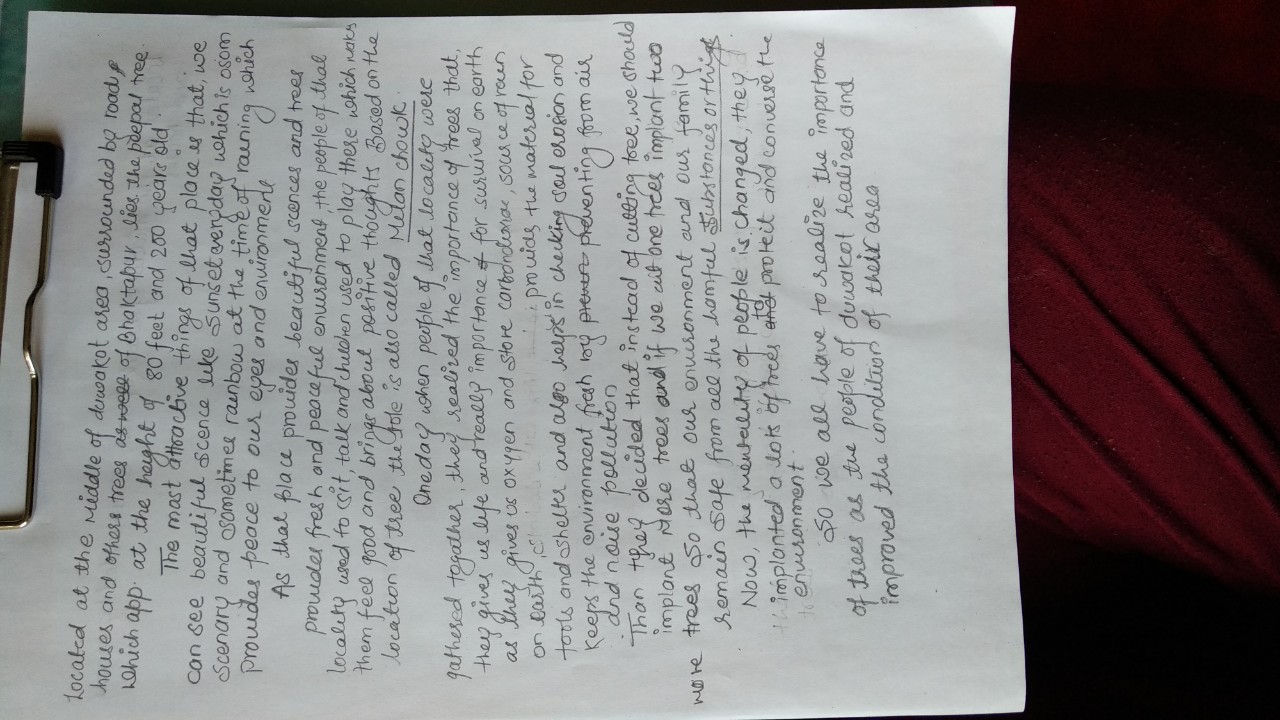 Located at the middle of duwakot area, surrounded by roads,
houses and others trees as well of Bhaktapur, lies the peepal tree
which app. at the height of 80 feet and 200 years old.
The most attractive things of that place is that, we
can see beautiful scence like Sunset everyday which is osom
scenary and sometimes rainbow at the time of raening which
provides peace to our eyes and environment
As that place provides beautiful scences and trees
provides fresh and peaceful enviornment, the people of that
locality used to sit, talk and chuldren used to play there which makes
them feel good and brings about positive thoughts. Based on the
location of tree, the tole is also called Milan chowk.
One day when people of that locality were
gathered togather, they realized the importance of trees that,
they gives us life and really importance of for survival on earth
as they gives us oxygen and store carbondioxide, sourse of rain
on earth, provides the material for
tools and shelter and also helps in checking soul erosion and
keeps the environment fresh by preven preventing from air
and noise pollution
Than they decided that instead of cutting tree, we should
implant More trees and if we cut one trees implant two
more trees so that our enviornment and our family
remain safe from all the harmful substances or things.
Now, the mentality of people is changed, they
implanted a lots of trees to protect and converse the
environment.
So we all have to realize the importance
of trees as the people of duwakot realized and
improved the condition of their area